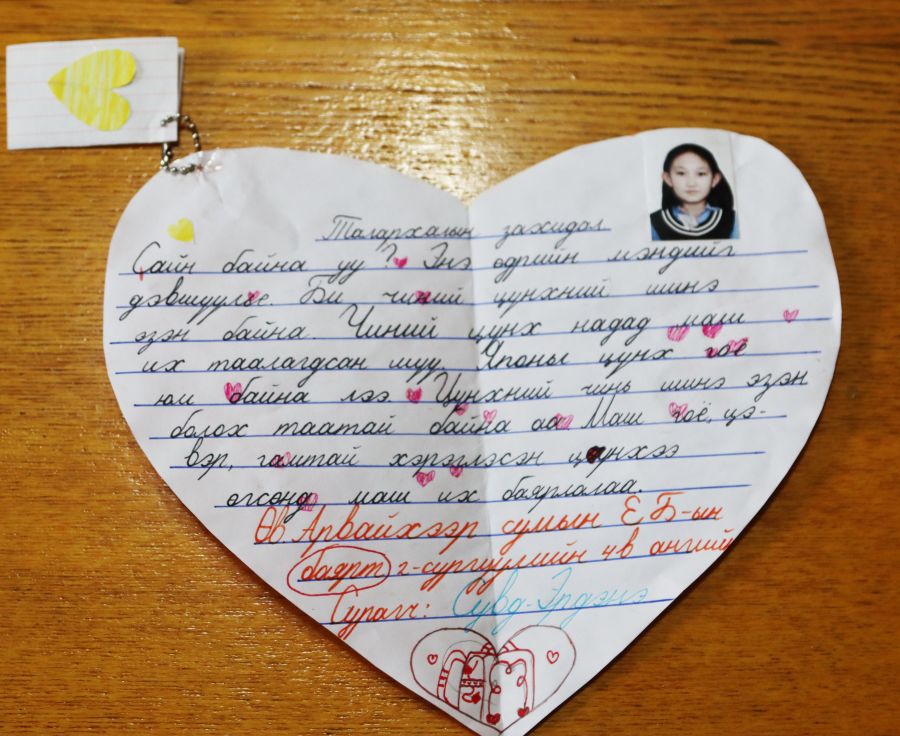 Талархалын захидал
Сайн байна уу? Энэ өдрийн мэндийг
дэвшүүлье. Би чиний цүнхний шинэ
эзэн байна. Чиний цүнх надад маш
их таалагдсан шүү. Японы цүнх гоё
юм байна лээ. Цүнхний чинь шинэ эзэн
болох таатай байна аа. Маш гоё, цэ-
вэр, гамтай хэрэглэсэн цүнхээ
өгсөнд маш их баярлалаа.
Өв Арвайхээр сумын ЕБ-ын
баярт 2-сургуулийн 4в ангийн
Сурагч: Сувд-Эрдэнэ